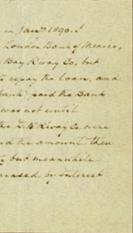 in Jany 1890.
London Bank of Mexico,
Bay R'way Co, but
repay the loan, and
Bank) paid the Bank
was not until
the R'way Co were
and the amount then
but meanwhile
creased by interest